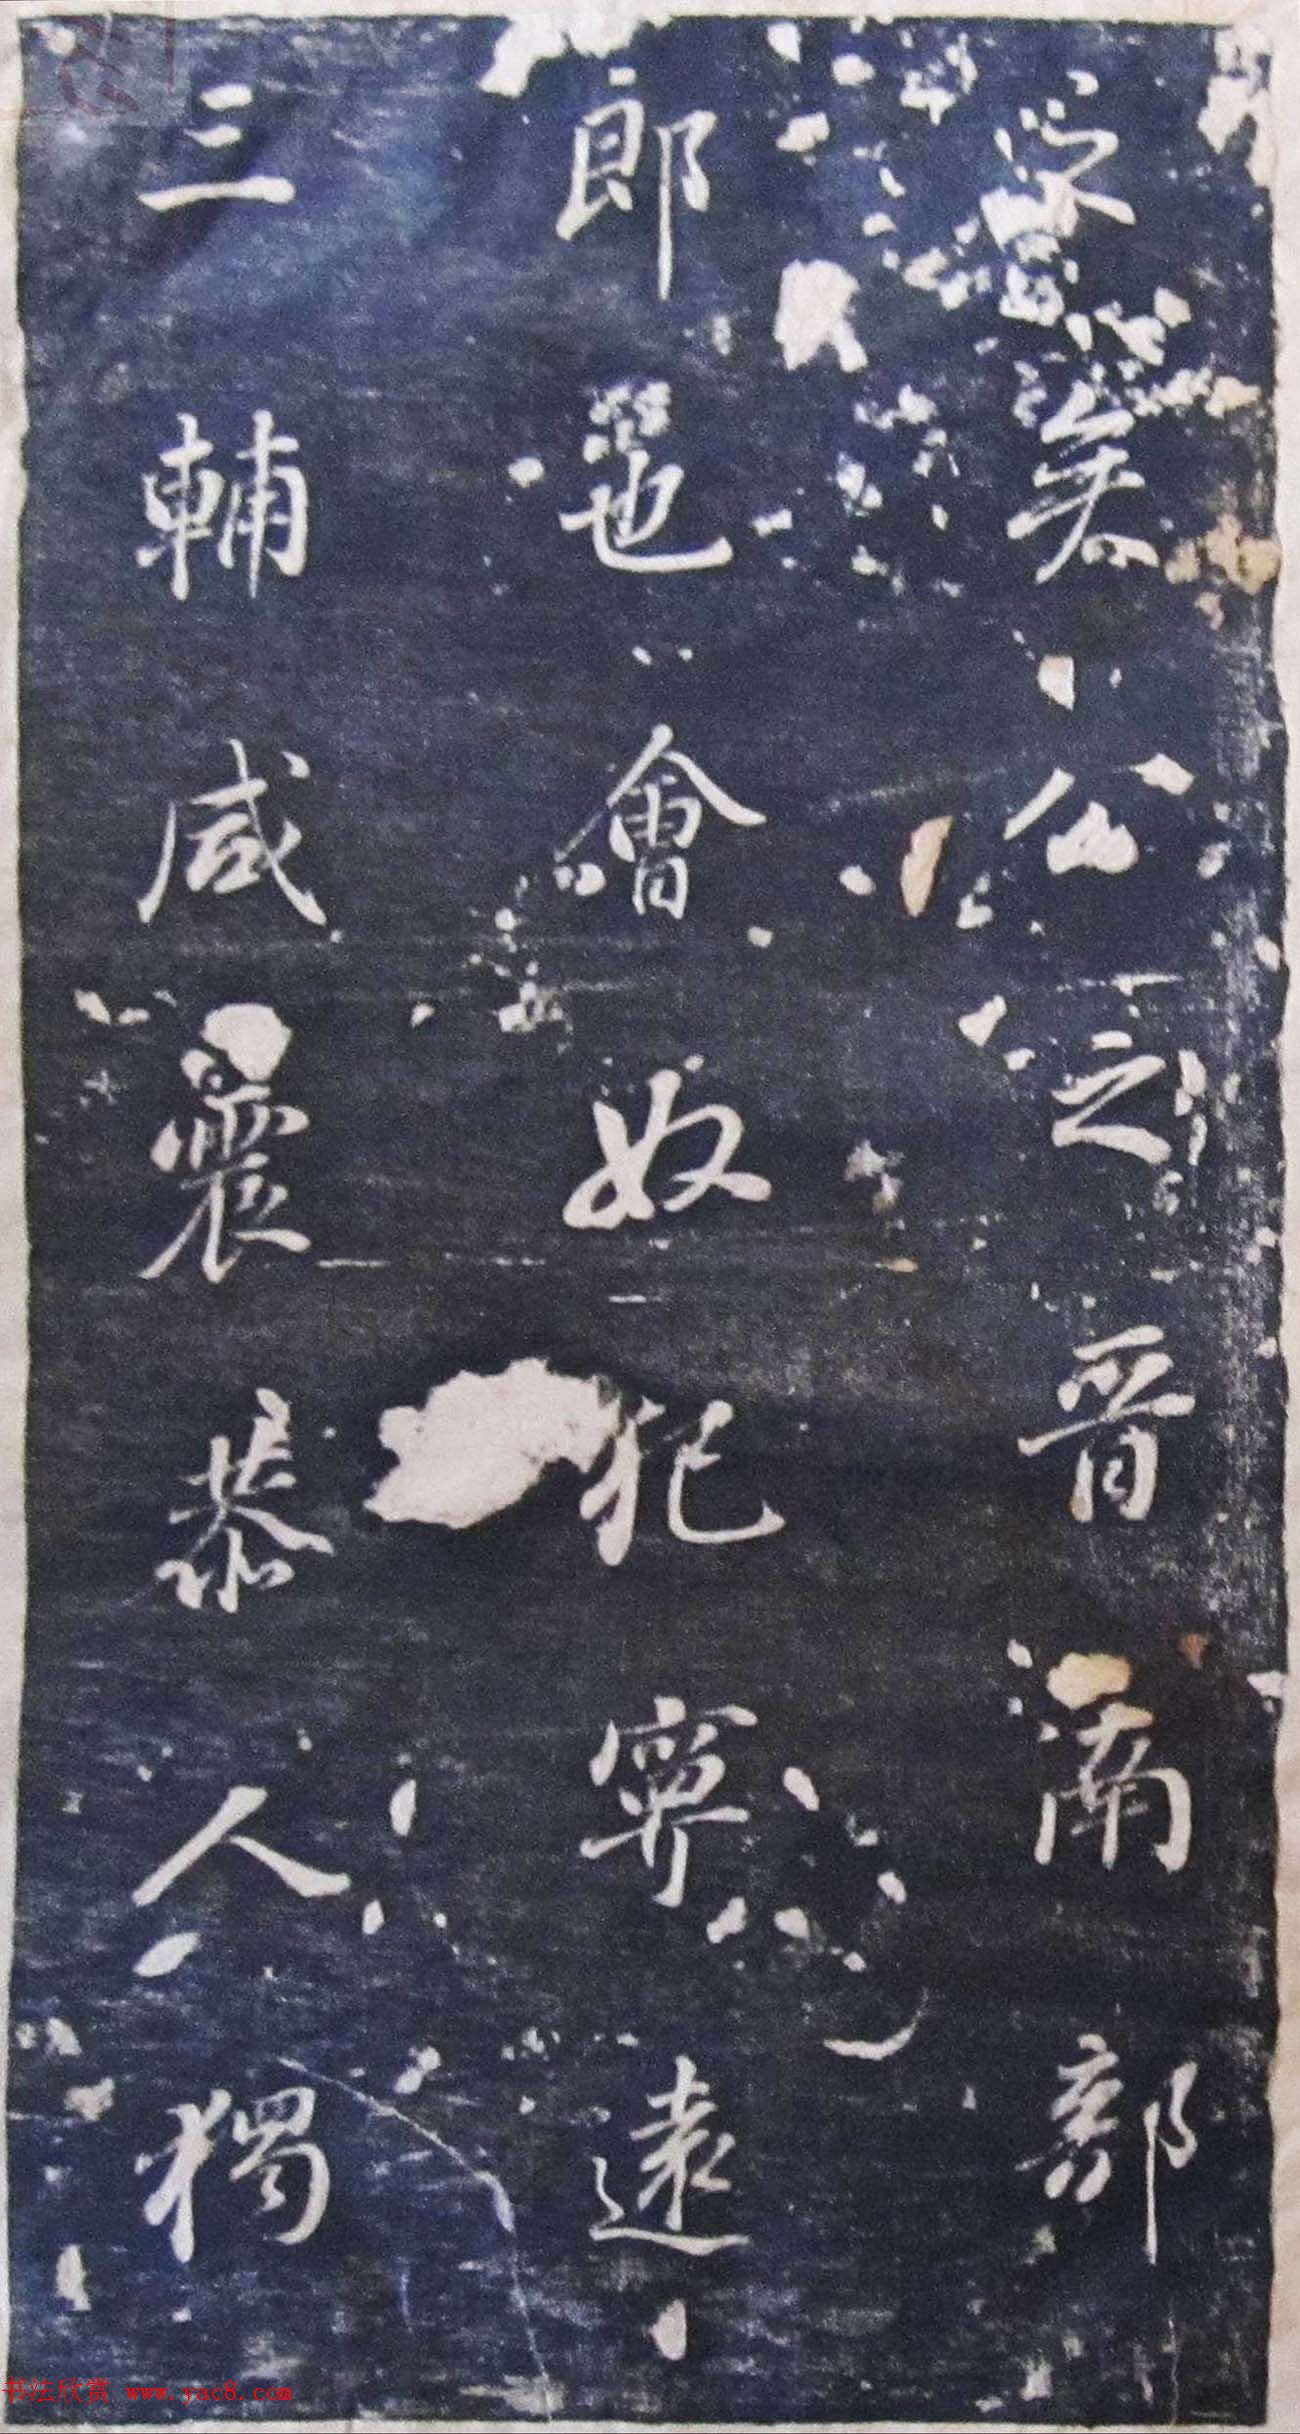 矣公之晋南部
郎也會奴犯寧遠
三輔咸震恭人獨
书法欣赏 www.yac8.com